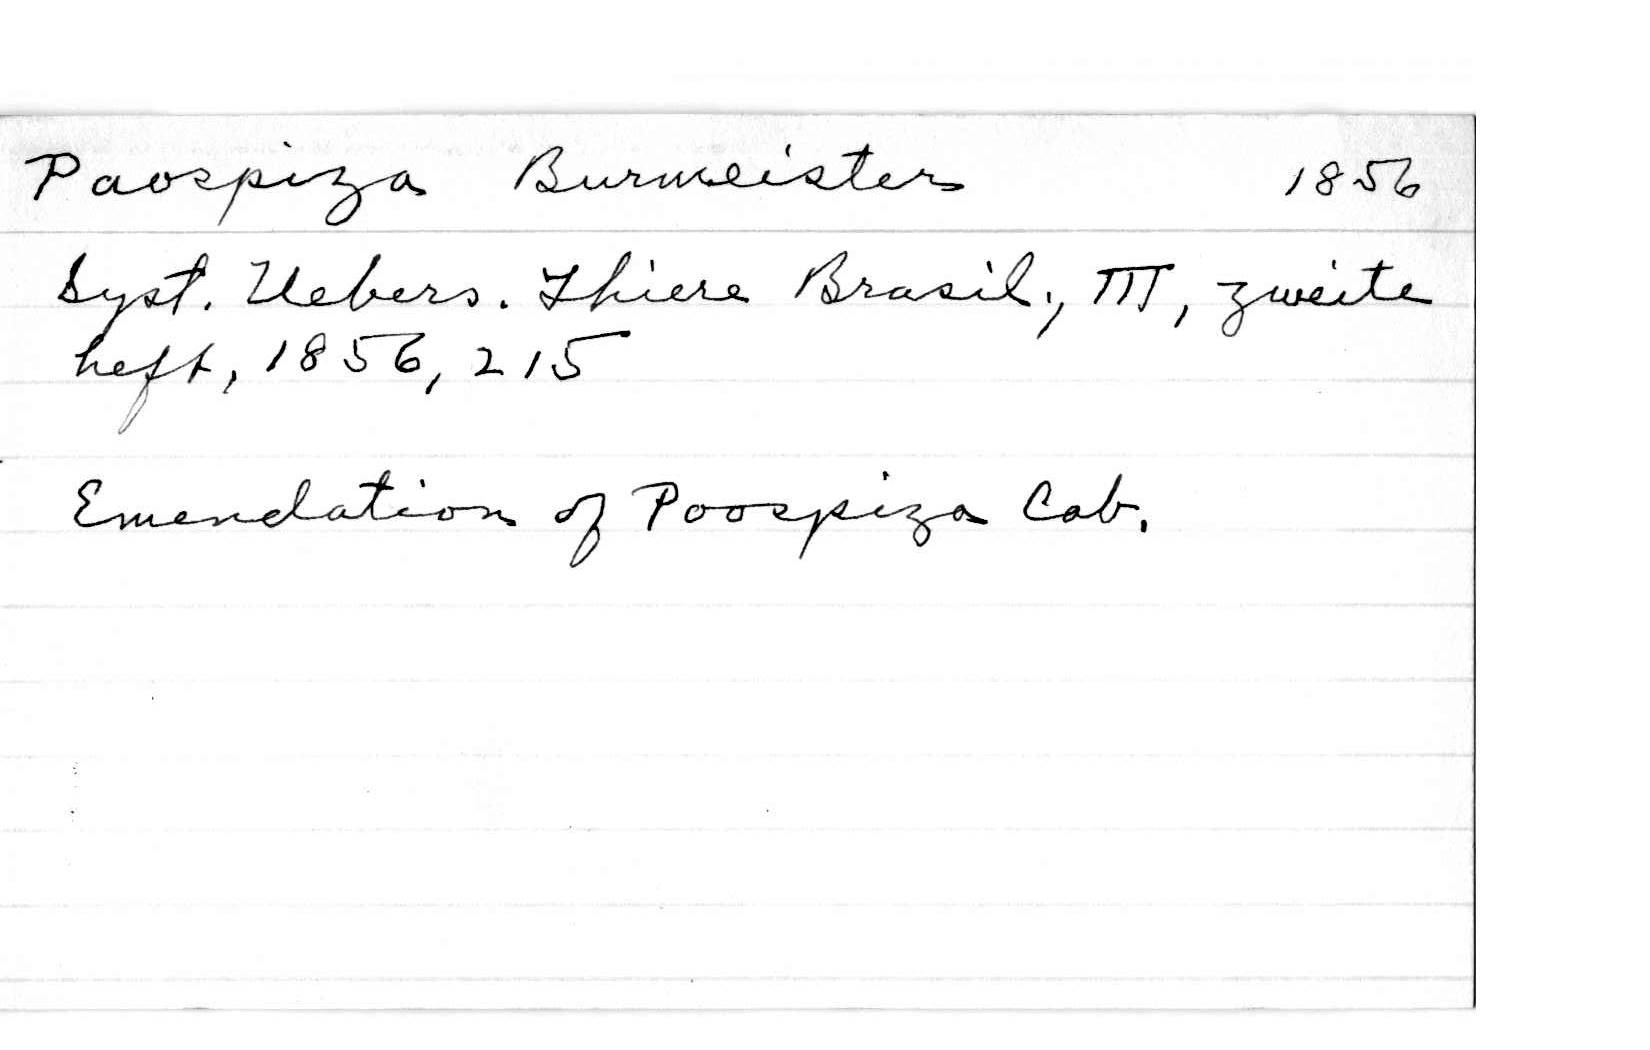 Paospiza Burmeister 1856
Syst. Uebers. Thiere Brasil., III, zweite
heft, 1856, 215
Emendation of Poospiza Cab.